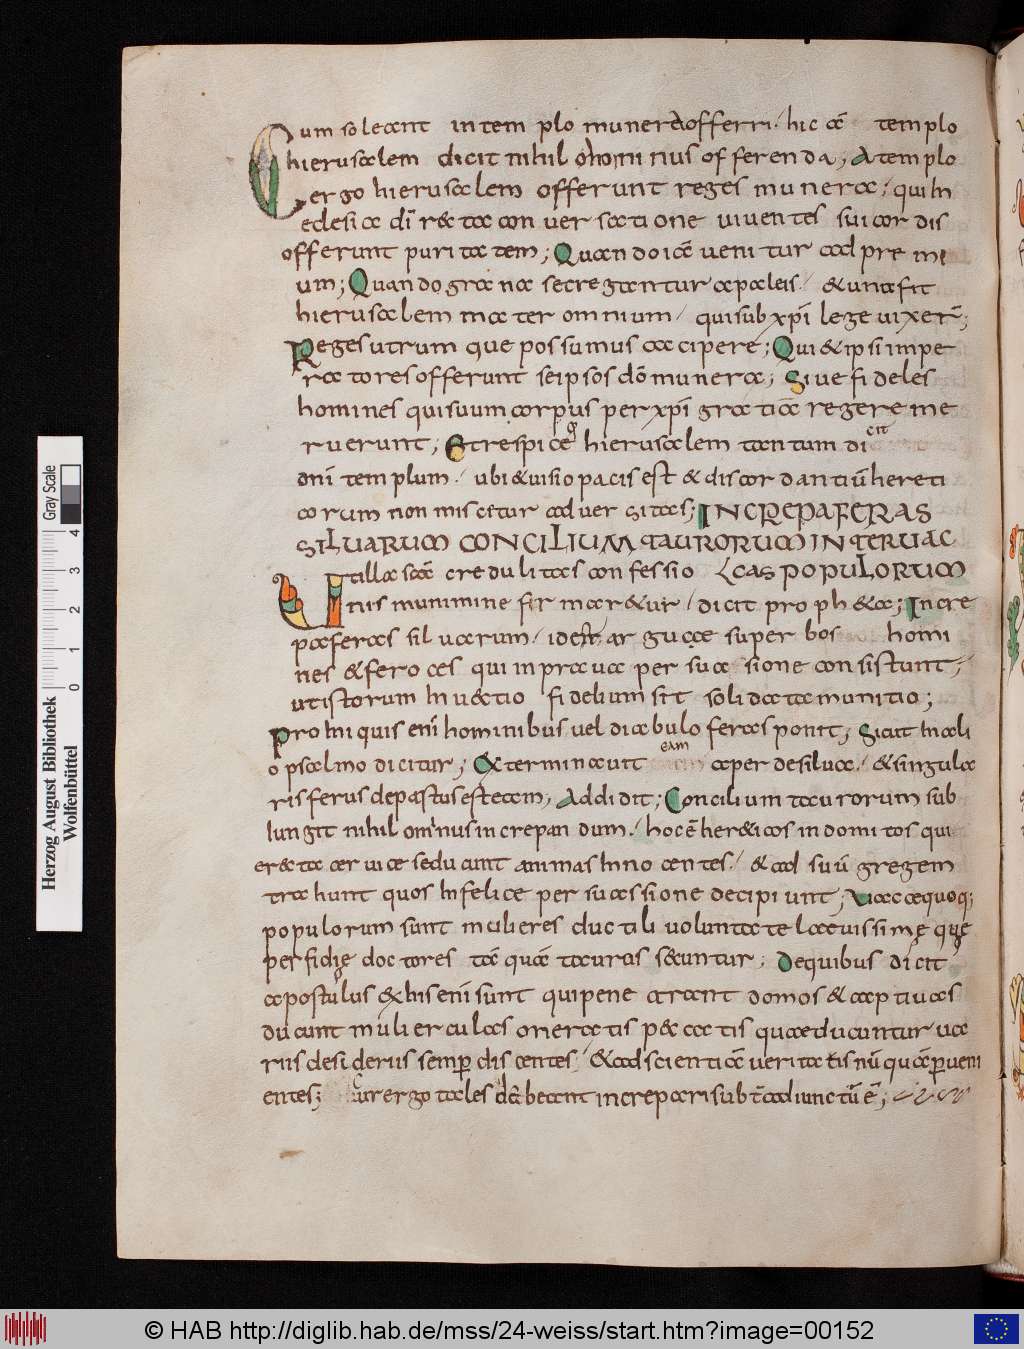 Cum soleant in templo munera offerri. hic cē templo
hierusalem dicit nihil omnino offerenda, A templo
ergo hierusalem offerunt reges munera; qui in
eclesia dī recta conversatione viventes sui cordis
offerunt puritatem; Quando iā venitur ad premi
um; Quando grana secregantur a paleis. & una fit
hierusalem mater omnium, qui sub xpī lege vixer̄;
Reges utrumque possumus accipere; Qui & ipsi impe
ratores offerunt se ipsos dō munera; Sive fideles
homines qui suum corpus per xpī gratiā regere me
ruerunt; Et respice hierusalem tantum di cit
oni templum. ubi & visio pacis est & discordantiū hereti
corum non miscitur adversitas; INCREPA FERAS
SILVARUM CONCILIUM TAURORUM INTER VAC
tilla scā credulitas confessio CAS POPULORUM
nis munimine firmaretur, dicit propheta; Incre
pa feras silvarum, idest argue super bos homi
nes & feroces qui in prava persuasione consistunt,
ut istorum invectio fidelium sit solidata munitio;
Pro iniquis enī hominibus vel diabulo feras ponit, Sicut in ali
o psalmo dicitur; Exterminavit eam aper de silva. & singula
ris ferus depastus est eam, Addidit; Concilium taurorum sub
iungit nihilominus increpandum. hoc ē hereticos indomitos qui
erecta cervice seducunt animas innocentes. & ad suū gregem
trahunt quos infelice persuassione decipiunt; Vaccae quoq;
populorum sunt mulieres ductili voluntate laevissime que
perfidie doctores tāquā tauras secuntur. De quibus dicit
apostulus ex his enī sunt qui penetrant domos & captivas
ducunt mulierculas oneratis peccatis quae ducuntur va
riis desideriis semp̄ discentes, & ad scientiā veritatis nūquā pveni
entes; Cur ergo tales debeant increpari subt̄ adiunctū ē;
Herzog August Bibliothek
Wolfenbüttel
0 1 2 3 4
Gray Scale
© HAB http://diglib.hab.de/mss/24-weiss/start.htm?image=00152